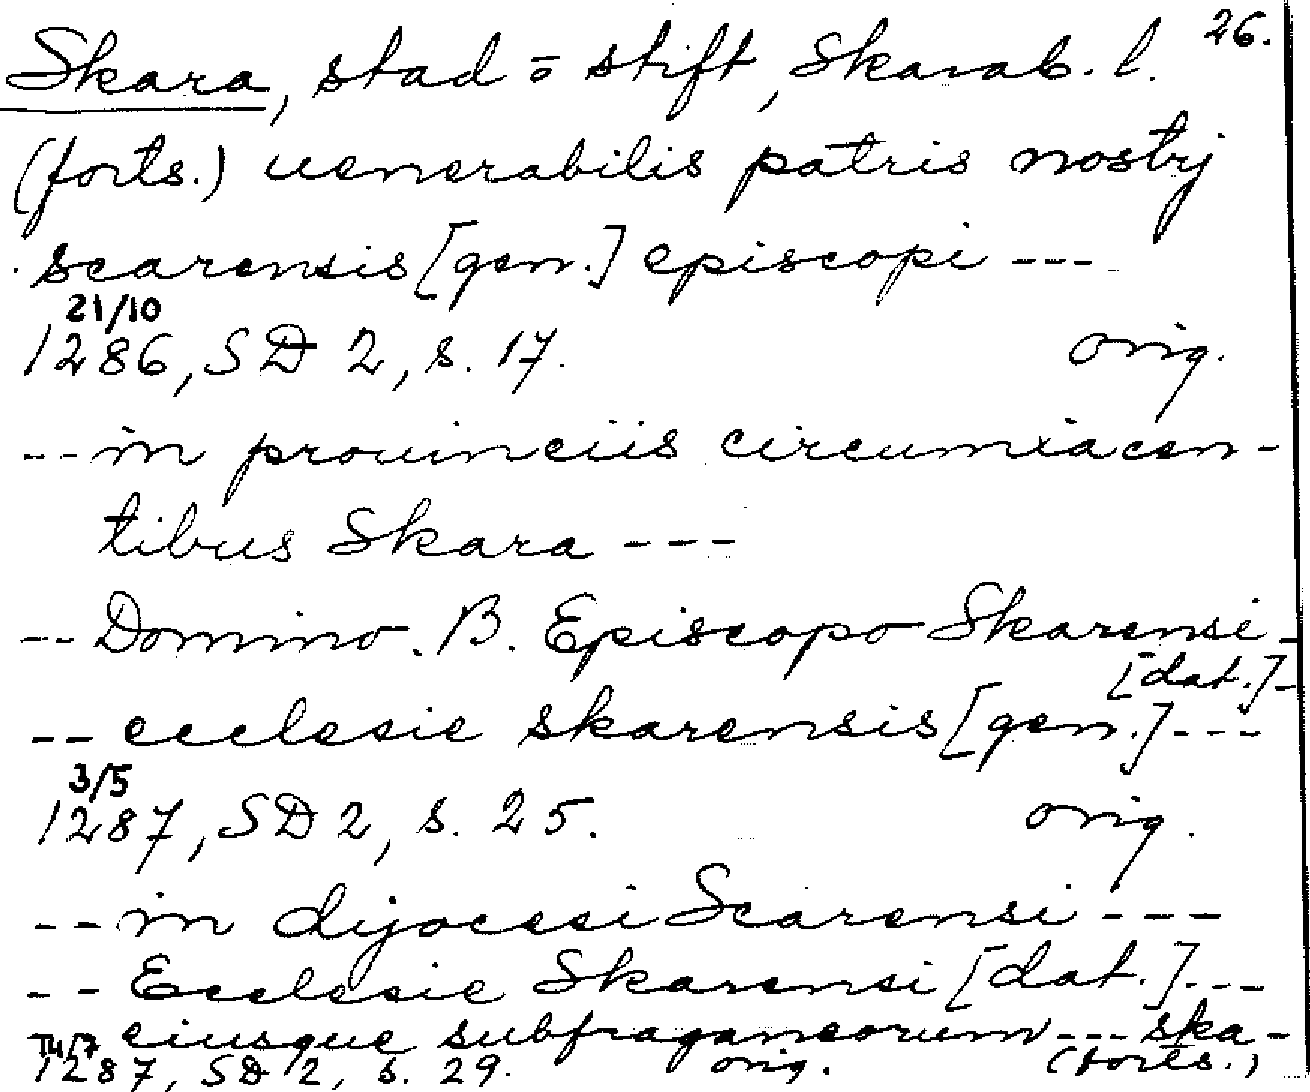 26.
Skara, stad o stift, Skarab. l.
(forts.) uenerabilis patris nostrj
scarensis [gen.] episcopi ---
21/10
1286, SD 2, s. 17. orig.
-- in prouinciis circumiacen-
tibus Skara ---
-- Domino. B. Episcopo Skarensi -
[dat.] -
-- ecclesie skarensis [gen.] ---
3/5
1287, SD 2, s. 25. orig.
-- in dijocesi Scarensi ---
-- Ecclesie Skarensi [dat.] ---
eiusque subfraganeorum --- ska-
1287, SD 2, s. 29. orig. (forts.)